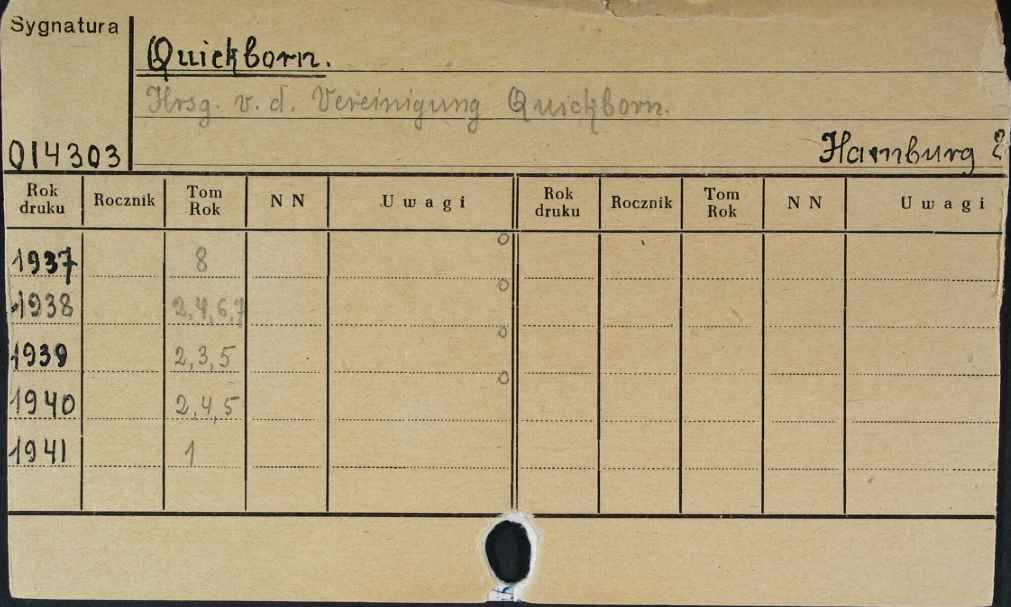 Sygnatura
Quickborn.
Hrsg. v. d. Vereinigung Quickborn.
014303
Hamburg
Rok druku Rocznik Tom Rok N N Uwagi Rok druku Rocznik Tom Rok N N Uwagi
1937 8
1938 2,4,6,7
1939 2,3,5
1940 2,4,5
1941 1